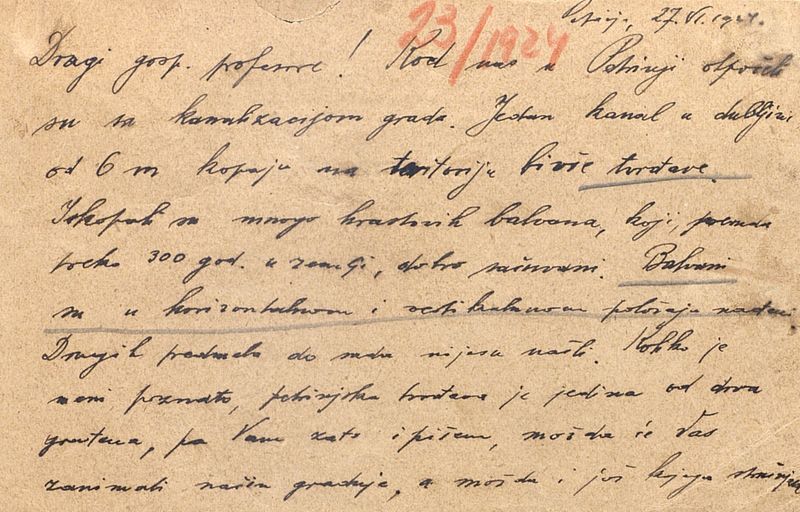 Petrinja, 27. VI. 1924.
23/1924
Dragi gosp. profesore! Kod nas u Petrinji otpočeli
su sa kanalizacijom grada. Jedan kanal u dubljini
od 6 m kopaju na teritoriju bivše tvrđave.
Iskopali su mnogo hrastovih balvana, koji, premda
preko 300 god. u zemlji, dobro sačuvani. Balvani
su u horizontalnom i vertikalnom položaju nađeni.
Drugih predmeta do sada nijesu našli. Koliko je
meni poznato, petrinjska tvrđava je jedina od drva
građena, pa Vam zato i pišem, možda će Vas
zanimati način gradnje, a možda i još koja